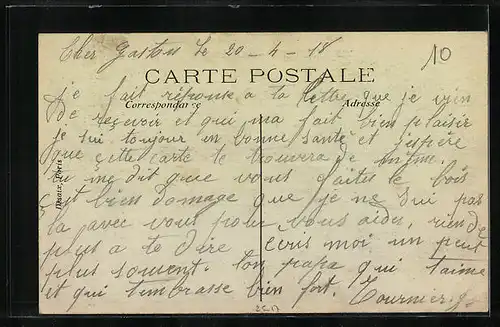 Cher Gaston Le 20-4-18
10
CARTE POSTALE
Correspondance
Adresse
je fait réponse a ta lettre que je vien
De reçevoir et qui ma fait bien plaisir
je sui toujour en bonne santé et j'espère
que çette carte te trouvera de même.
tu me dit que vous faites le bois
c'est bien domage que je ne sui pas
la avec vous pour vous aider, rien de
plus a te dire ecris moi un peut
plus souvent. ton papa qui t'aime
et qui t'embrasse bien fort. Tournier. J.